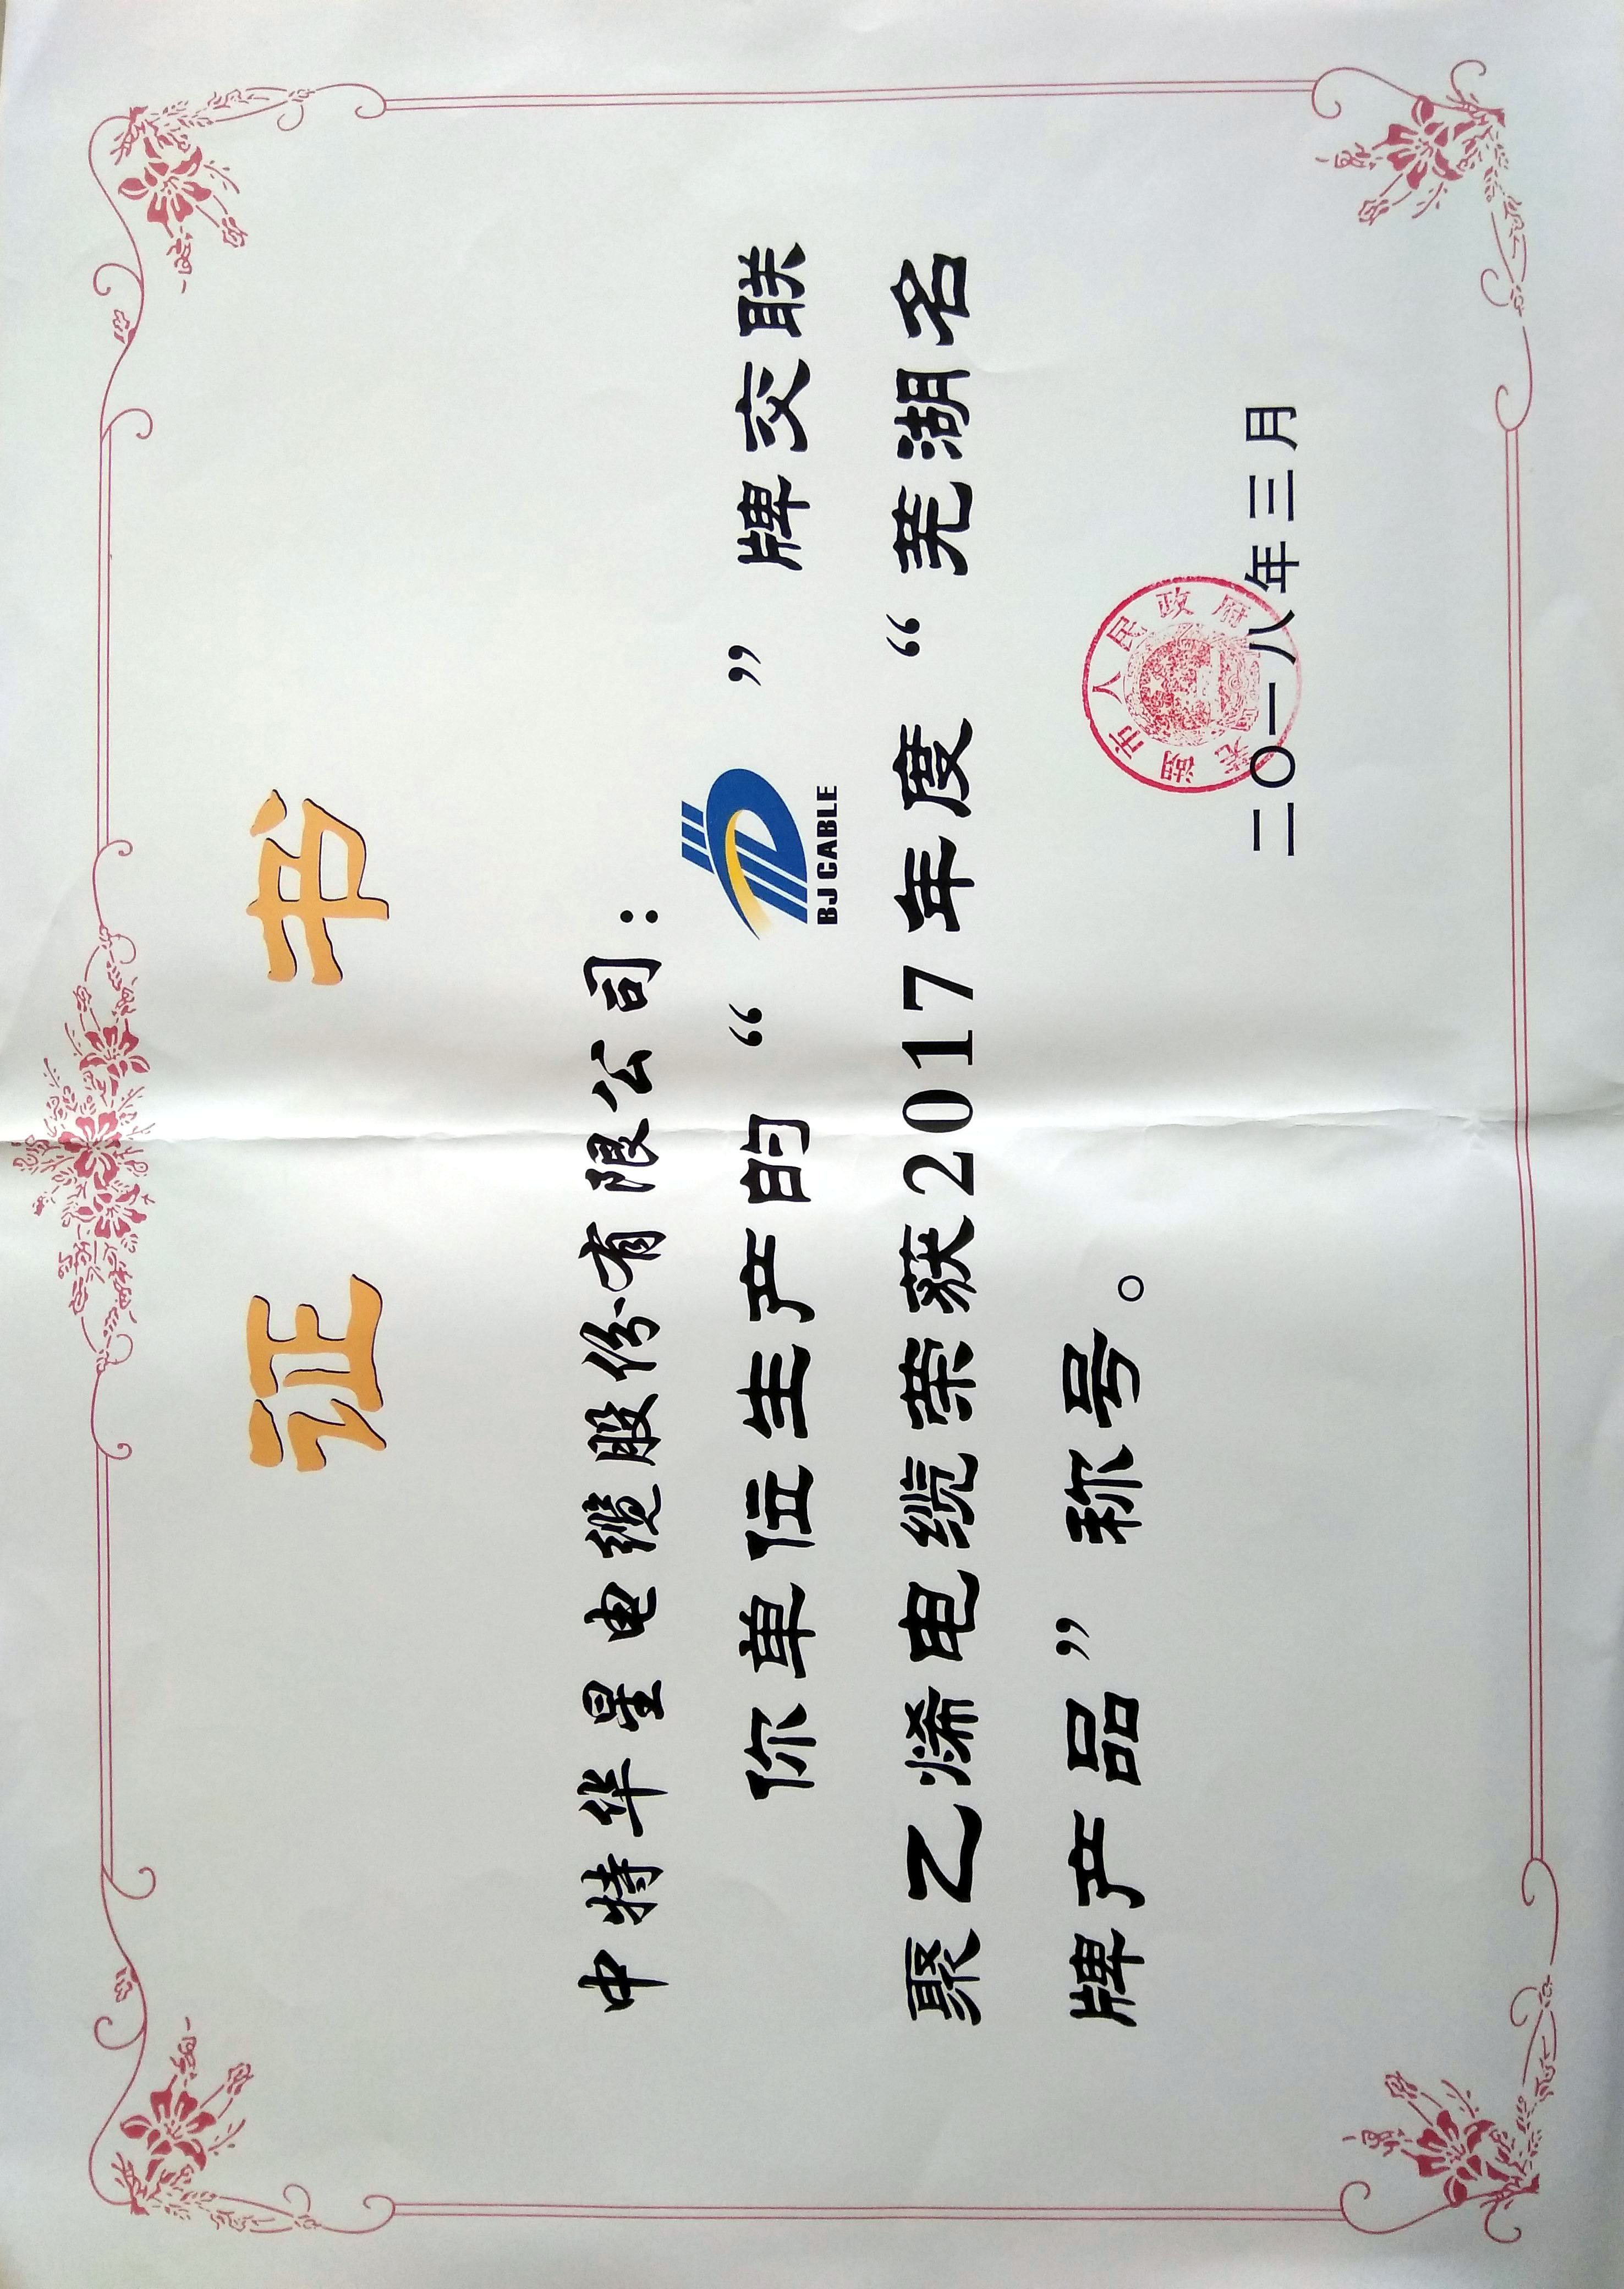 证书
中特华星电缆股份有限公司：
你单位生产的“BJ CABLE”牌交联
聚乙烯电缆荣获2017年度“芜湖名
牌产品”称号。
芜湖市人民政府
二〇一八年三月